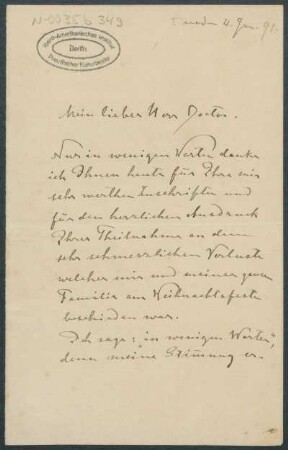 N-0035 b 349
Ibero-Amerikanisches Institut
Berlin
Preußischer Kulturbesitz
4. Jan. 91.
Mein lieber Herr Doctor.
Nur in wenigen Worten danke
ich Ihnen heute für Ihre mir
sehr werthen Zuschriften und
für den herzlichen Ausdruck
Ihrer Theilnahme an dem
sehr schmerzlichen Verluste
welcher mir und meiner ganzen
Familie am Weihnachtsfeste
beschieden war.
Ich sage: „in wenigen Worten",
denn meine Stimmung er-